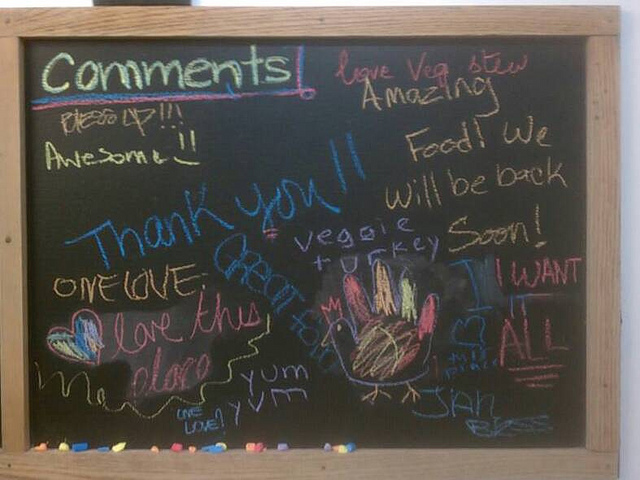 Comments!
love Veg. stew
Amazing
Food! We
will be back
Soon!
BLESS UP!!!
Awesome!!
Thank you!!
veggie
turkey
GREAT FOOD
ONE LOVE.
love this
place
I WANT
IT
ALL
I
yum
yum
ONE
LOVE!
JAH
BLESS